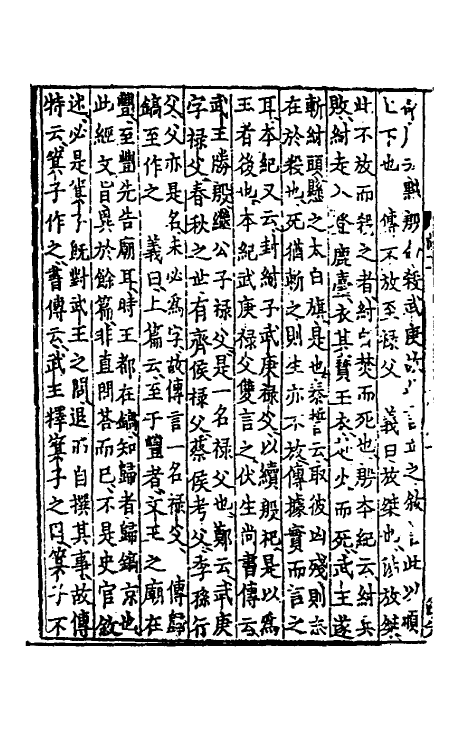 命及下黜殷命殺武庚故言立之敘言此以順
上下也　傳不放至祿父　義曰放桀也湯放桀
此不放而殺之者紂自焚而死也殷本紀云紂兵
敗紂走入登鹿臺衣其寶玉衣赴火而死武王遂
斬紂頭懸之太白旗是也泰誓云取彼凶殘則志
在於殺也死猶斬之則生亦不放傳據實而言之
耳本紀又云封紂子武庚祿父以續殷祀是以爲
王者後也本紀武庚祿父雙言之伏生尚書傳云
武王勝殷繼公子祿父是一名祿父也鄭云武庚
字祿父春秋之世有齊侯祿父蔡侯考父季孫行
父父亦是名未必爲字故傳言一名祿父　傳歸
鎬至作之　義曰上篇云至于豐者文王之廟在
豐至豐先告廟耳時王都在鎬知歸者歸鎬京也
此經文旨異於餘篇非直問荅而已不是史官敘
述必是箕子旣對武王之問退而自撰其事故傳
特云箕子作之書傳云武王釋箕子之囚箕子不